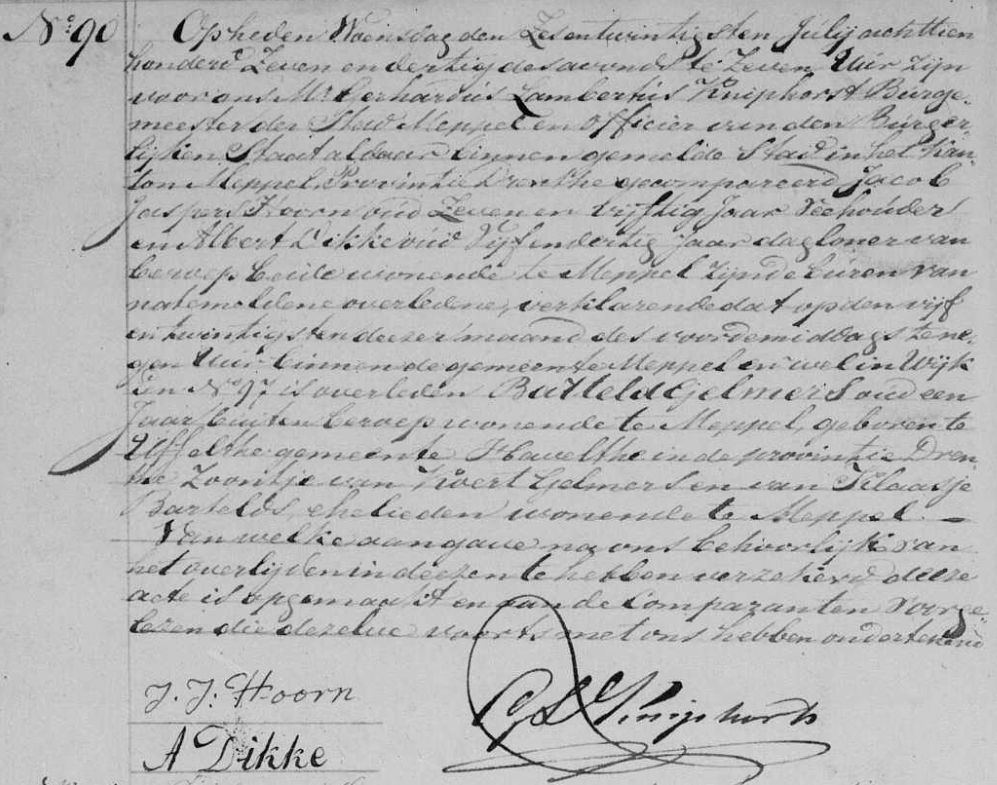 No. 90 Op heden Woensdag den Zesentwintigsten Julij achttien
honderd Zeven en dertig des avonds te Zeven Uur zijn
voor ons Mr. Gerhardus Lambertus Kniphorst Burge-
meester der Stad Meppel en officier van den Burger-
lijken Staat aldaar binnen gemelde Stad in het Kan-
ton Meppel Provintie Drenthe gecompareerd Jacob
Jaspers Hoorn oud Zeven en vijftig Jaar Veehouder
en Albert Dikke oud Vijf en dertig jaar dagloner van
beroep beide wonende te Meppel zijnde buren van
natemeldene overledene, verklarende dat op den vijf
en twintigsten dezer maand des voordemiddags te ne-
gen Uur binnen de gemeente Meppel en wel in Wijk
één No. 97 is overleden Barteld Gelmers oud een
Jaar buiten beroep wonende te Meppel, geboren te
Uffelthe gemeente Havelthe in de provintie Dren-
the Zoontje van Koert Gelmers en van Klaasje
Bartelds, ehelieden wonende te Meppel. —
Van welke aangave na ons behoorlijk van
het overlijden in deezen te hebben verzekerd deeze
acte is opgemaakt en aan de Comparanten Voorge-
lezen die dezelve voorts met ons hebben ondertekend
J. J. Hoorn
GL Kniphorst
A Dikke